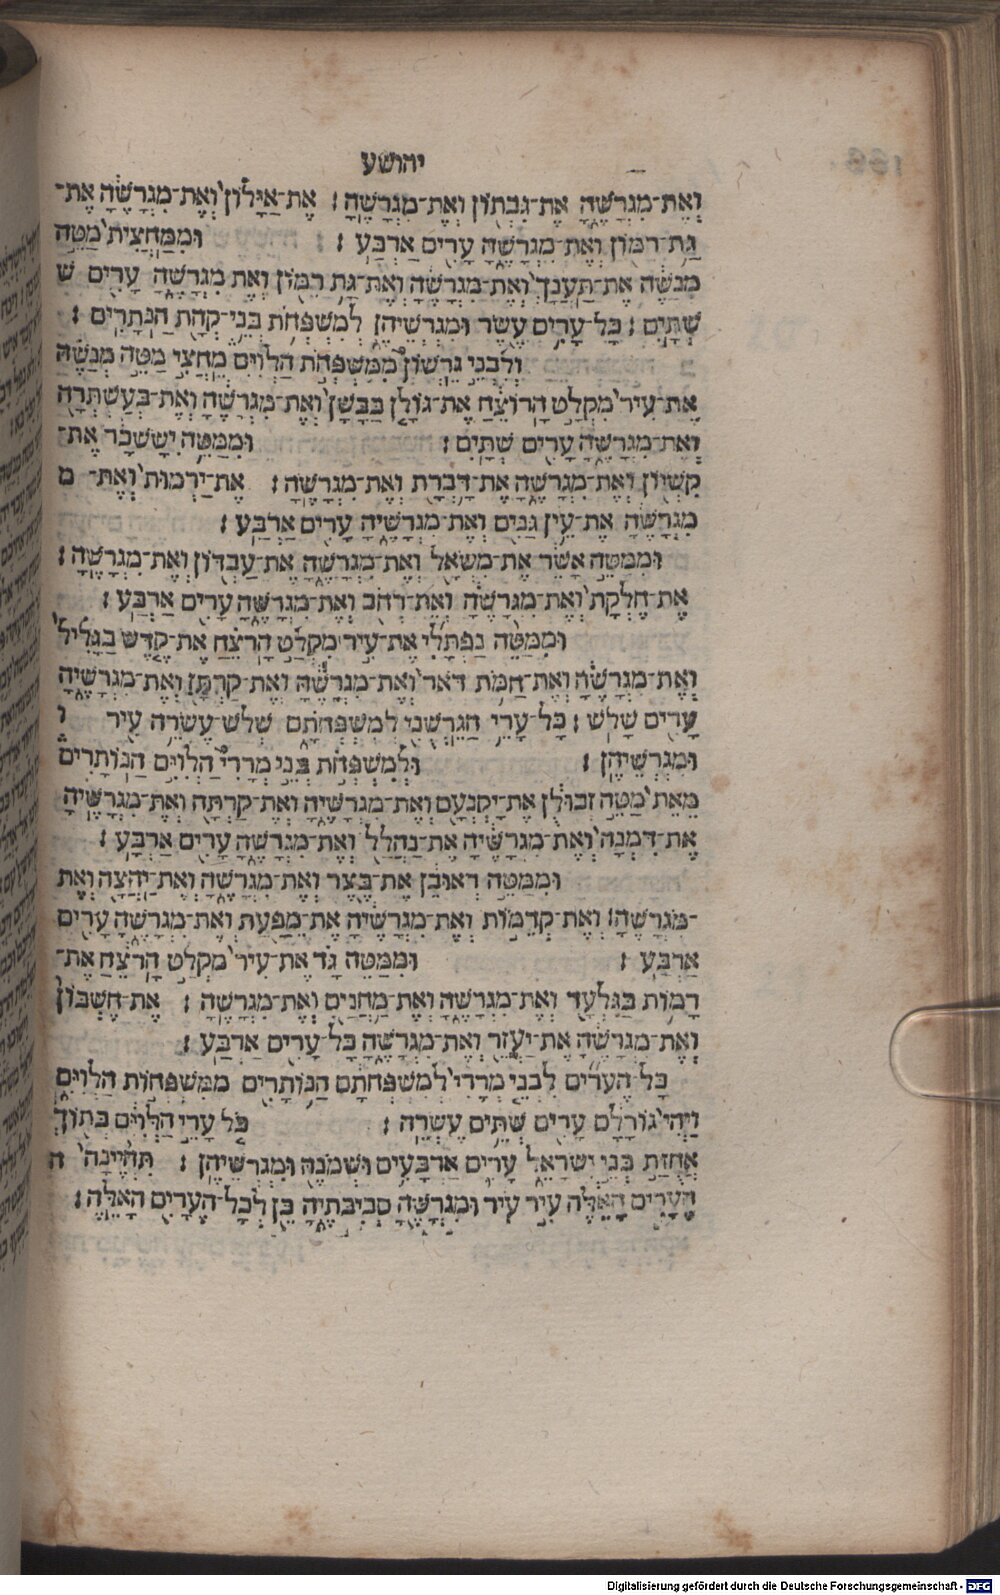 יהושע
וְאֶת־מִגְרָשֶׁהָ אֶת־גִבְתוֹן וְאֶת־מִגְרָשֶׁהָ׃ אֶת־אַיָלוֹן וְאֶת־מִגְרָשֶׁהָ אֶת־
גַת־רִמוֹן וְאֶת־מִגְרָשֶׁהָ עָרִים אַרְבַּע׃ וּמִמַּחֲצִית מַטֵה
מְנַשֶּׁה אֶת־תַּעְנַךְ וְאֶת־מִגְרָשֶׁהָ וְאֶת־גַת רִמּוֹן וְאֶת מִגְרָשֶׁהָ עָרִים ש
שְׁתָּיִם׃ כָּל־עָרִים עֶשֶׂר וּמִגְרְשֵׁיהֶן לְמִשְׁפְּחֹת בְּנֵי־קְהָת הַנּוֹתָרִים׃
וְלִבְנֵי גֵרְשׁוֹן מִמִּשְׁפְּחֹת הַלְוִיִּם מֵחֲצִי מַטֵה מְנַשֶּׁה
אֶת־עִיר מִקְלַט הָרוֹצֵחַ אֶת־גוֹלָן בַּבָּשָׁן וְאֶת־מִגְרָשֶׁהָ וְאֶת־בְּעֶשְׁתְּרָה
וְאֶת־מִגְרָשֶׁהָ עָרִים שְׁתָּיִם׃ וּמִמַּטֵה יִשָּׂשכָר אֶת־
קִשְׁיוֹן וְאֶת־מִגְרָשֶׁהָ אֶת־דָּבְרַת וְאֶת־מִגְרָשֶׁהָ׃ אֶת־יַרְמוּת וְאֶת־ מ
מִגְרָשֶׁהָ אֶת־עֵין גַנִּים וְאֶת־מִגְרָשֶׁיהָ עָרִים אַרְבַּע׃
וּמִמַּטֵה אָשֵׁר אֶת־מִשְׁאָל וְאֶת־מִגְרָשֶׁהָ אֶת־עַבְדּוֹן וְאֶת־מִגְרָשֶׁהָ׃
אֶת־חֶלְקָת וְאֶת־מִגְרָשֶׁהָ וְאֶת־רְחֹב וְאֶת־מִגְרָשֶׁהָ עָרִים אַרְבַּע׃
וּמִמַּטֵה נַפְתָּלִי אֶת־עִיר מִקְלַט הָרֹצֵחַ אֶת־קֶדֶשׁ בַּגָּלִיל
וְאֶת־מִגְרָשֶׁהָ וְאֶת־חַמֹּת דֹּאר וְאֶת־מִגְרָשֶׁהָ וְאֶת־קַרְתָּן וְאֶת־מִגְרָשֶׁיהָ
עָרִים שָׁלֹשׁ׃ כָּל־עָרֵי הַגֵּרְשֻׁנִּי לְמִשְׁפְּחֹתָם שְׁלֹשׁ־עֶשְׂרֵה עִיר ו
וּמִגְרְשֵׁיהֶן׃ וּלְמִשְׁפְּחֹת בְּנֵי־מְרָרִי הַלְוִיִּם הַנּוֹתָרִים
מֵאֵת מַטֵה זְבוּלֻן אֶת־יָקְנְעָם וְאֶת־מִגְרָשֶׁיהָ וְאֶת־קַרְתָּה וְאֶת־מִגְרָשֶׁיהָ
אֶת־דִּמְנָה וְאֶת־מִגְרָשֶׁיהָ אֶת־נַהֲלָל וְאֶת־מִגְרָשֶׁהָ עָרִים אַרְבַּע׃
וּמִמַּטֵה רְאוּבֵן אֶת־בֶּצֶר וְאֶת־מִגְרָשֶׁהָ וְאֶת־יַהְצָה וְאֶת
־מִגְרָשֶׁהָ׃ וְאֶת־קְדֵמוֹת וְאֶת־מִגְרָשֶׁיהָ אֶת־מֵפַעַת וְאֶת־מִגְרָשֶׁהָ עָרִים
אַרְבַּע׃ וּמִמַּטֵה גָד אֶת־עִיר מִקְלַט הָרֹצֵחַ אֶת־
רָמוֹת בַּגִּלְעָד וְאֶת־מִגְרָשֶׁהָ וְאֶת־מַחֲנַיִם וְאֶת־מִגְרָשֶׁהָ׃ אֶת־חֶשְׁבּוֹן
וְאֶת־מִגְרָשֶׁהָ אֶת־יַעְזֵר וְאֶת־מִגְרָשֶׁהָ כָּל־עָרִים אַרְבַּע׃
כָּל־הֶעָרִים לִבְנֵי מְרָרִי לְמִשְׁפְּחֹתָם הַנּוֹתָרִים מִמִּשְׁפְּחוֹת הַלְוִיִּם
וַיְהִי גּוֹרָלָם עָרִים שְׁתֵּים עֶשְׂרֵה׃ כֹּל עָרֵי הַלְוִיִּם בְּתוֹךְ
אֲחֻזַּת בְּנֵי יִשְׂרָאֵל עָרִים אַרְבָּעִים וּשְׁמֹנֶה וּמִגְרְשֵׁיהֶן׃ תִּהְיֶינָה ה
הֶעָרִים הָאֵלֶּה עִיר עִיר וּמִגְרָשֶׁיהָ סְבִיבֹתֶיהָ כֵּן לְכָל־הֶעָרִים הָאֵלֶּה׃
Digitalisierung gefördert durch die Deutsche Forschungsgemeinschaft - DFG